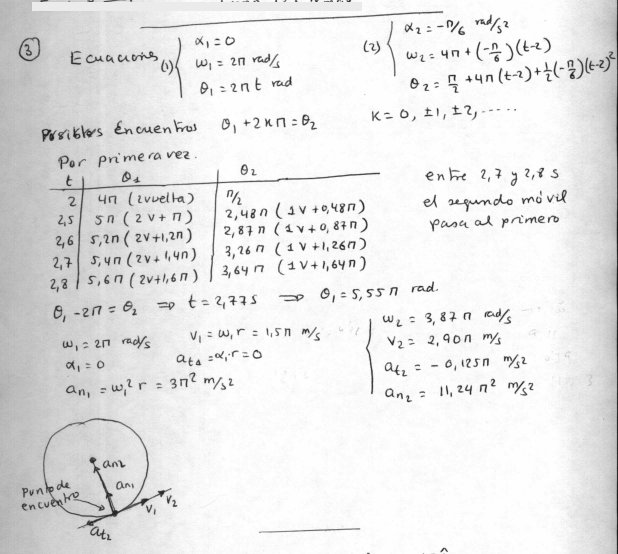 ③ Ecuaciones (1) { α₁ = 0
ω₁ = 2π rad/s
θ₁ = 2πt rad
(2) { α₂ = -π/6 rad/s²
ω₂ = 4π + (-π/6)(t-2)
θ₂ = π/2 + 4π(t-2) + 1/2(-π/6)(t-2)²
Posibles Encuentros θ₁ + 2kπ = θ₂ K = 0, ±1, ±2, .....
Por primera vez.
t θ₁ θ₂
2 4π (2 vuelta) π/2
2,5 5π (2v + π) 2,48π (1v + 0,48π)
2,6 5,2π (2v + 1,2π) 2,87π (1v + 0,87π)
2,7 5,4π (2v + 1,4π) 3,26π (1v + 1,26π)
2,8 5,6π (2v + 1,6π) 3,64π (1v + 1,64π)
entre 2,7 y 2,8 s
el segundo móvil
pasa al primero
θ₁ - 2π = θ₂ ⇒ t = 2,77 s ⇒ θ₁ = 5,55π rad.
ω₁ = 2π rad/s V₁ = ω₁r = 1,5π m/s
α₁ = 0 at₁ = α₁·r = 0
an₁ = ω₁²r = 3π² m/s²
{ ω₂ = 3,87π rad/s
V₂ = 2,90π m/s
at₂ = -0,125π m/s²
an₂ = 11,24π² m/s²
an₂
an₁
Punto de
encuentro
V₁ V₂
at₂